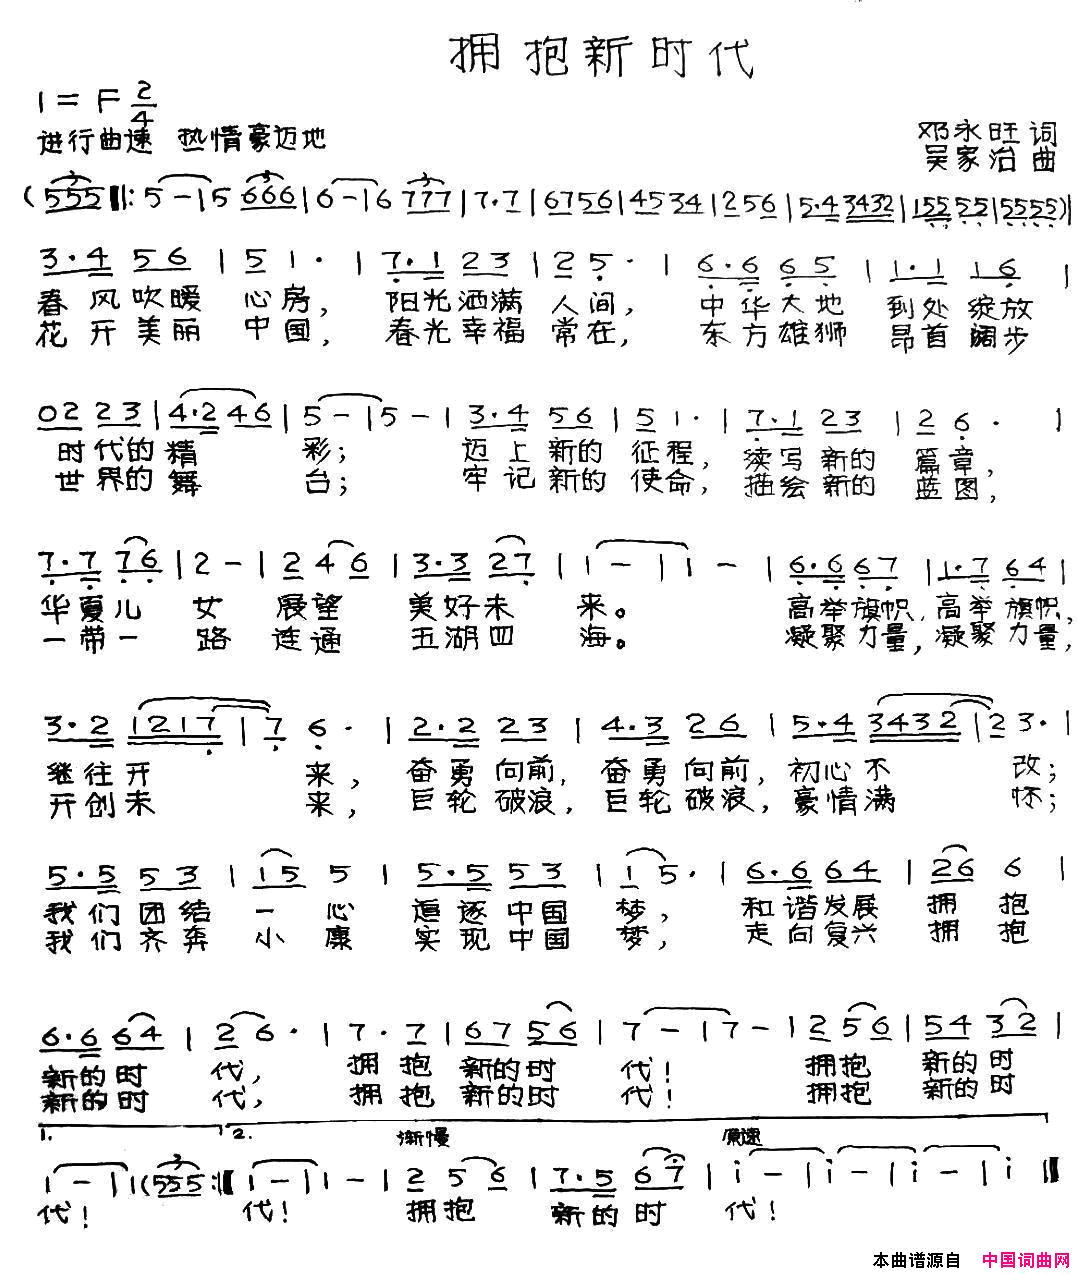 拥抱新时代
1=F 2/4
进行曲速 热情豪迈地
邓永旺 词
吴家治 曲
(555‖:5-|5 666|6-|6 777|7·7|6756|4534|256|5·4 3432|155 55|5555)|
3·4 56|51·|7·1 23|25·|6·6 65|1·1 16|
春风吹暖 心房, 阳光洒满 人间, 中华大地 到处绽放
花开美丽 中国, 春光幸福 常在, 东方雄狮 昂首阔步
022 23|4·2 46|5-|5-|3·4 56|51·|7·1 23|26·|
时代的精 彩; 迈上新的 征程, 续写新的 篇章,
世界的舞 台; 牢记新的 使命, 描绘新的 蓝图,
7·7 76|2-|246|3·3 27|1-|1-|6·6 67|1·7 64|
华夏儿 女 展望 美好未 来。 高举旗帜, 高举旗帜,
一带一 路 连通 五湖四 海。 凝聚力量, 凝聚力量,
3·2 1217|76·|2·2 23|4·3 26|5·4 3432|23·|
继往开 来, 奋勇向前, 奋勇向前, 初心不 改;
开创未 来, 巨轮破浪, 巨轮破浪, 豪情满 怀;
5·5 53|15 5|5·5 53|15·|6·6 64|26 6|
我们团结 一心 追逐中国 梦, 和谐发展 拥抱
我们齐奔 小康 实现中国 梦, 走向复兴 拥抱
6·6 64|26·|7·7|67 56|7-|7-|256|54 32|
新的时 代, 拥抱 新的时 代! 拥抱 新的时
新的时 代, 拥抱 新的时 代! 拥抱 新的时
1. 2. 渐慢 原速
1-|1(555:‖1-|1-|256|7·5 67|i-|i-|i-|i‖
代! 代! 拥抱 新的时 代!
本曲谱源自 中国词曲网